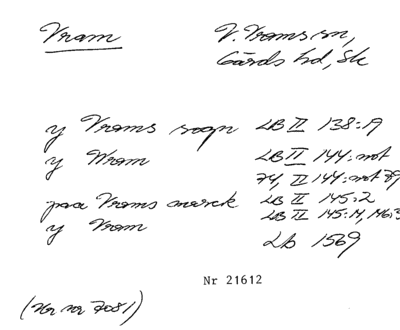 Vram V. Vrams sn,
Gärds hd, Sk
y Vrams sogn LB II 138:19
y Wram LB II 144: not
74, II 144: not 79
paa Vrams marck LB II 145:2
y Vram LB II 145:14, 146:3
Lb 1569
Nr 21612
(Nr 7081)